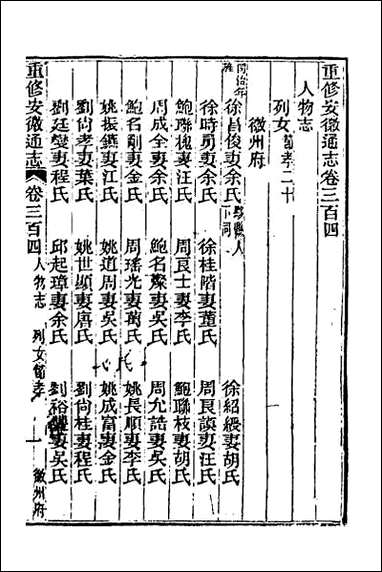 重修安徽通志卷三百四
人物志
列女節孝二十
徽州府
徐昌俊妻余氏 徐紹緩妻胡氏
徐時勇妻余氏 徐桂階妻董氏 周艮談妻汪氏
鮑聯槐妻汪氏 周艮士妻李氏 鮑聯枝妻胡氏
周成全妻余氏 鮑名爕妻吳氏 周尤誥妻吳氏
鮑名創妻金氏 周瑤光妻萬氏 姚長順妻李氏
姚振鑣妻江氏 姚道周妻吳氏 姚成富妻金氏
劉尚孝妻葉氏 姚世顯妻唐氏 劉尚桂妻程氏
劉廷燮妻程氏 邱起璋妻余氏 劉裕妻吳氏
重修安徽通志 卷三百四 人物志 列女節孝 一 徽州府